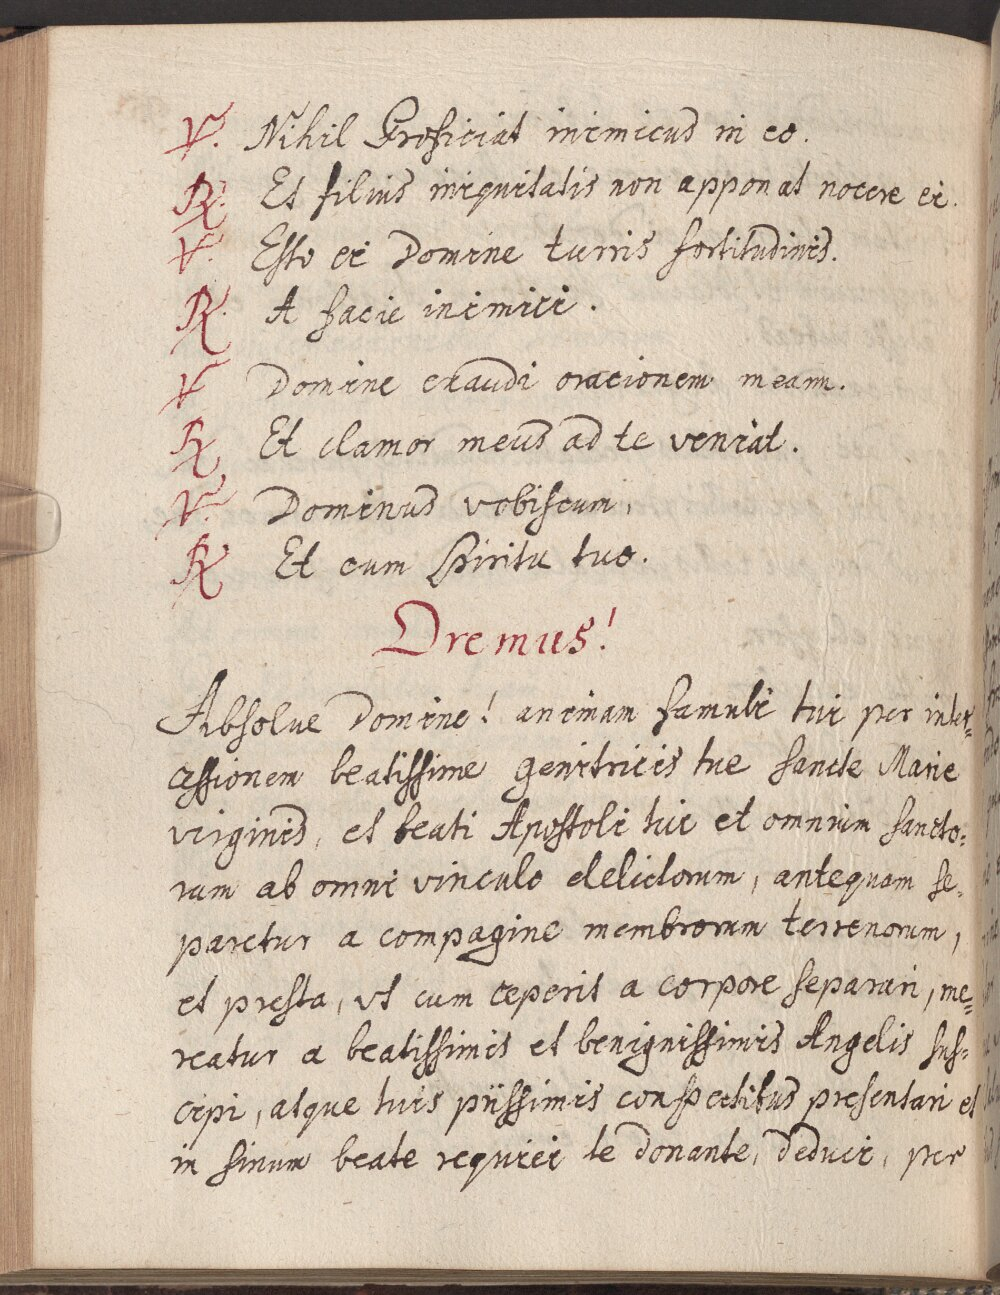 ℣. Nihil Proficiat inimicus in eo.
℟. Et filius iniquitatis non apponat nocere ei.
℣. Esto ei Domine turris fortitudinis.
℟. A facie inimici.
℣ Domine exaudi oracionem meam.
℟ Et clamor meus ad te veniat.
℣. Dominus vobiscum,
℟ Et cum Spiritu tuo.
Oremus!
Absolve Domine! animam famuli tui per inter=
cessionem beatissime genitricis tue sancte Marie
virginis, et beati Apostoli tui et omnium sancto=
rum ab omni vinculo delictorum, antequam se=
paretur a compagine membrorum terrenorum,
et presta, vt cum ceperit a corpore separari, me=
reatur a beatissimis et benignissimis Angelis sus=
cipi, atque tuis piissimis conspectibus presentari et
in sinum beate requiei te donante, deduci, per